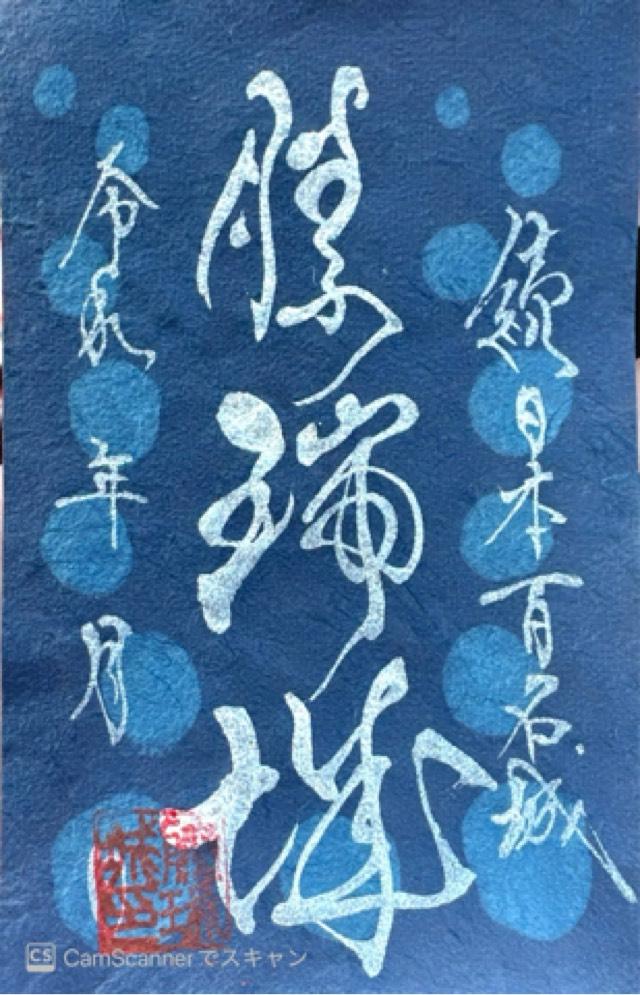 続日本百名城
勝瑞城
令和 年 月
CS CamScannerでスキャン